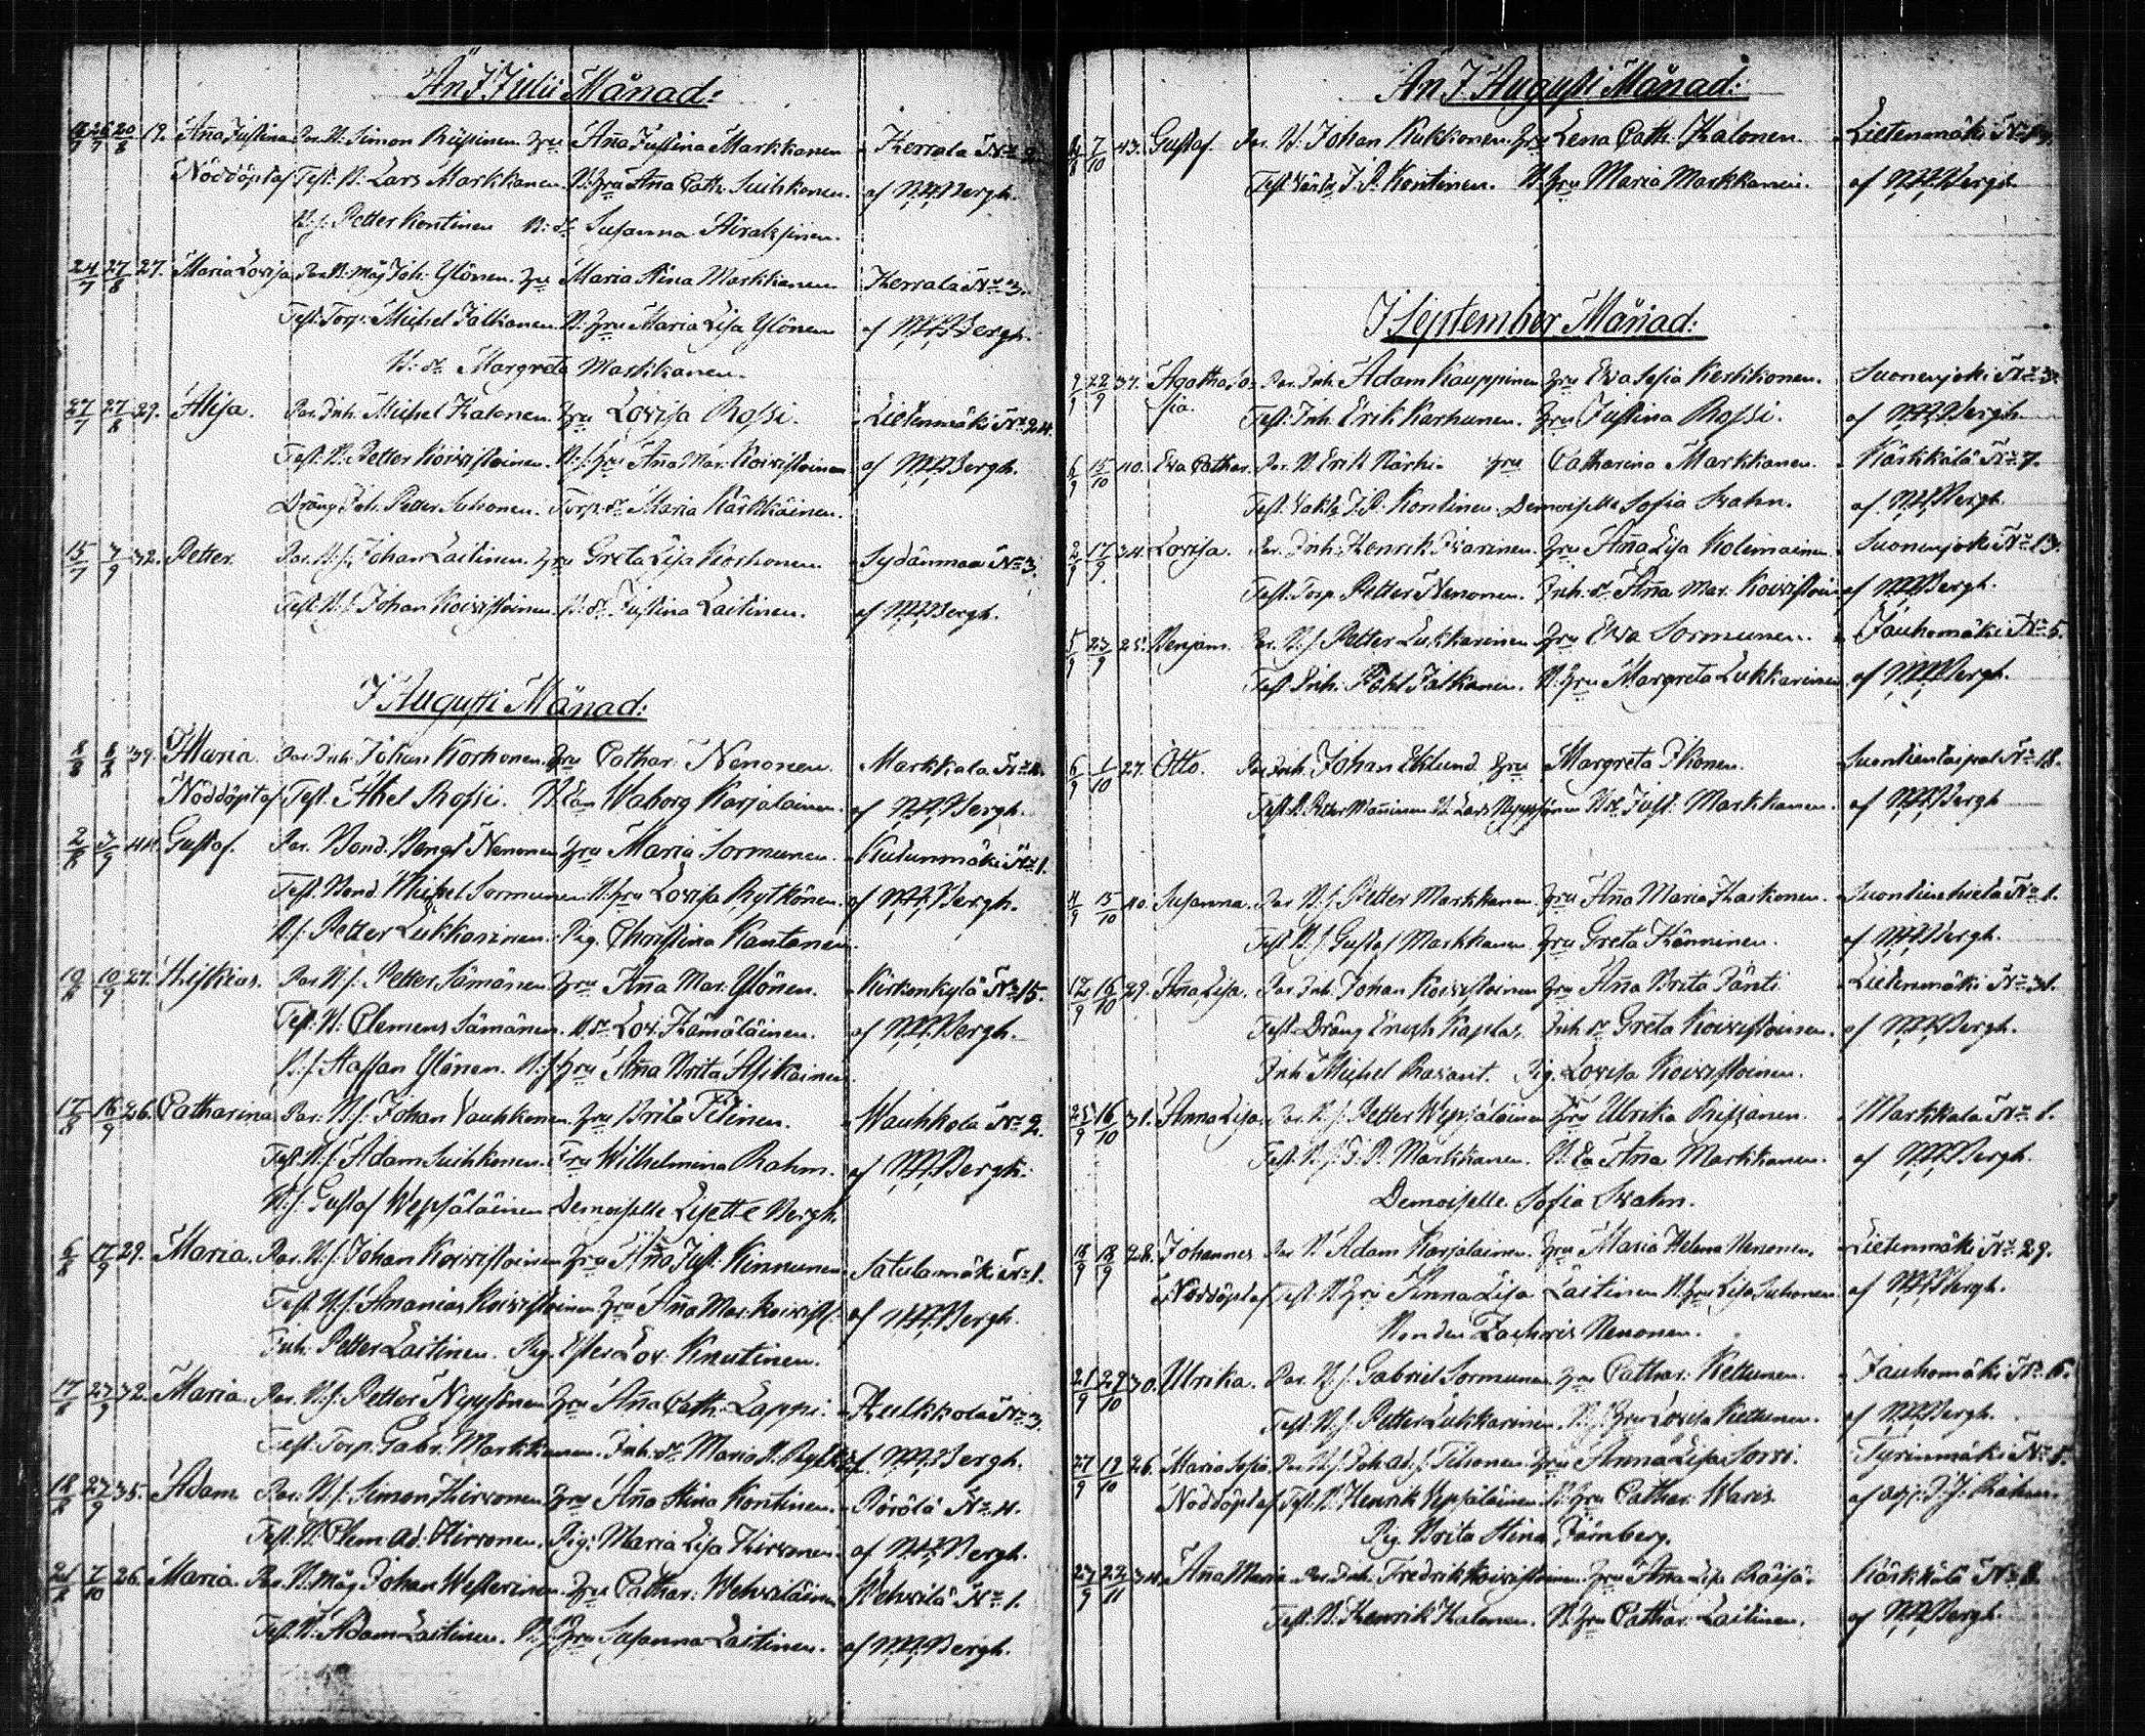 An I Julii Månad:
19. Aña Justina Par. B. Simon Rissinen Hru Aña Justina Markkanen Kerrala No
Nöddöpt af Test. B. Lars Markkanen. B. Hru Aña Cath. Suihkonen. af Bergh.
B:s. Petter Kontinen B: dr Susanna Airaksinen.
24/7 27/8 27. Maria Lovisa Par. B. måg Joh: Ylönen. Hru Maria Stina Markkanen Kerrala No 3.
Test. Torp: Michel Jalkanen. B: Hru Maria Lisa Ylönen af Bergh.
B: dr Margreta Markkanen.
27/7 27/8 29. Alisa. Par. Inh. Michel Halonen. Hru Lovisa Rossi. Lietenmäki No 24.
Test. B: Petter Koivistoinen. B:s. Hru Aña Mar. Koivistoinen af Bergh.
Dräng Joh. Petter Suhonen. Torp: dr Maria Kärkkäinen.
15/7 3/9 32. Petter. Par. B:s. Johan Laitinen. Hru Greta Lisa Korhonen. Sydänmaa No 3.
Test. B:s. Johan Koivistoinen. B: dr Justina Laitinen. af Bergh.
I Augusti Månad:
8/8 8/8 39. Maria. Par. Inh. Johan Korhonen. Hru Cathar: Nenonen. Markkala No
Nöddöpt af Test. Abel Rossi. B. Ea Waborg Karjalainen. af Bergh.
2/8 3/9 44. Gustaf. Par. Bond. Bengt Nenonen Hru Maria Sormunen. Kutunmäki No 1.
Test. Bond. Michel Sormunen B. Hru Lovisa Rytkönen. af Bergh.
B:s. Petter Lukkarinen. Pig. Christina Kantanen.
10/8 10/9 27. Hiskias. Par. B:s. Petter Sämänen Hru Aña Mar. Ylönen. Kirkonkylä No 15.
Test. B. Clemens Sämänen. B. dr Lov. Hämäläinen. af Bergh.
B:s. Staffan Ylönen. B:s. Hru Aña Brita Asikainen.
17/8 16/9 26. Catharina Par. B:s. Johan Vauhkonen. Hru Brita Titinen. Wauhkola No 2.
Test. B:s. Adam Suihkonen. Fru Wilhelmina Rahm. af Bergh.
B:s. Gustaf Wepsäläinen Demoiselle Lisette Bergh.
6/8 17/9 29. Maria. Par. B:s. Johan Koivistoinen Hru Aña Just. Kinnunen Satulamäki No 1.
Test. B:s. Ananias Koivistoinen Hru Aña Mar. Koivist. af Bergh.
Inh: Petter Laitinen. Pig. Ester Lov. Knutinen.
17/8 27/9 32. Maria. Par. B:s. Petter Nyyssönen Hru Aña Cath. Lappi. Hulkkola No 3.
Test. Torp. Gabr. Markkanen. Inh: dr Maria af Bergh.
18/8 27/9 35. Adam Par. B:s. Simon Hirvonen Hru Aña Stina Kontinen. Pörölä No 4.
Test. B. Clem. Ad. Hirvonen. Pig: Maria Lisa Hirvonen. af Bergh.
21/8 7/10 26. Maria. Par. B. måg Johan Westerinen Hru Cathar: Wehviläinen Wehvilä No 1.
Test. B. Adam Laitinen. B:s. Hru Susanna Laitinen. af Bergh.
An I Augusti Månad:
7/10 43. Gustaf Par. B. Johan Kukkonen Hru Lena Cath. Halonen. Lietenmäki No
Test. J. P. Kontinen. B. Hru Maria Markkanen. af Bergh.
I September Månad:
9/9 22/9 37. Agatha So- Par. Inh. Adam Kauppinen Hru Eva Sofia Kerkkonen. Suonenjoki No 3.
fia. Test: Inh. Erik Karhunen. Hru Justina Rossi. af Bergh.
6/9 15/10 40. Eva Cathar. Par. B. Erik Närhi Hru Catharina Markkanen. Kärkkälä No 7.
Test. J. P. Kontinen. Demoiselle Sofia Svahn. af Bergh.
2/9 17/9 34. Lovisa. Par. Inh. Henrik Ivarinen. Hru Aña Lisa Kolimainen. Suonenjoki No 13.
Test. Torp. Petter Nenonen. Inh: dr Aña Mar. Koivistoin af Bergh.
5/9 23/9 25. Benjam. Par. B:s. Petter Lukkarinen Hru Eva Sormunen. Jauhomäki No 5.
Test. Inh. Påhl Jalkanen. B. Hru Margreta Lukkarinen. af Bergh.
6/9 1/10 27. Otto. Par. Inh. Johan Eklund. Hru Margreta Ikonen. Suontientaipal No 18.
Test. B. Petter Manninen B. Lars Nyyssönen B. dr Just. Markkanen. af Bergh
4/9 15/10 40. Susanna. Par. B:s. Petter Markkanen Hru Aña Maria Haikonen. No 1.
Test. B:s. Gustaf Markkanen Hru Greta Hänninen. af Bergh.
12/9 16/10 29. Aña Lisa. Par. Inh. Johan Koivistoinen Hru Aña Brita Jänti Lietenmäki No 31.
Test. Dräng Enoch Kaplas. Inh. dr Greta Koivistoinen. af Bergh.
Inh. Michel Ravant. Pig. Lovisa Koivistoinen.
25/9 16/10 31. Anna Lisa. Par. B:s. Petter Wepsäläinen Hru Ulrika Rissanen. Markkala No 1.
Test. B:s. P. Markkanen. B. Ea Aña Markkanen. af Bergh.
Demoiselle Sofia Svahn.
18/9 18/9 28. Johannes Par. B. Adam Karjalainen. Hru Maria Helena Nenonen. Lietenmäki No 29.
Nöddöpt af Test. B. Hru Anna Lisa Laitinen B. Hru Lisa Suhonen. af Bergh.
Bonden Zachris Nenonen.
21/9 29/10 30. Ulrika. Par. B:s. Gabriel Sormunen Hru Cathar: Kettunen. Jauhomäki No 6.
Test. B:s. Petter Lukkarinen. B:s. Hru Lovisa Kettunen. af Bergh.
27/9 19/10 26. Maria Sofia. Par. B:s. Joh. Ad. s. Tihonen Hru Anna Lisa Sorri. Tyrinmäki No
Nöddöpt af Test. B. Henrik Wepsäläinen B. Hru Cathar. Waris. af Rahm.
Pig. Brita Stina Järnberg.
27/9 22/11 34. Aña Maria Par. Inh. Fredrik Koivistoinen. Hru Aña Lisa Räisä- Kärkkälä No 8.
Test. B. Henrik Halonen. B. Hru Cathar. Laitinen. af Bergh.